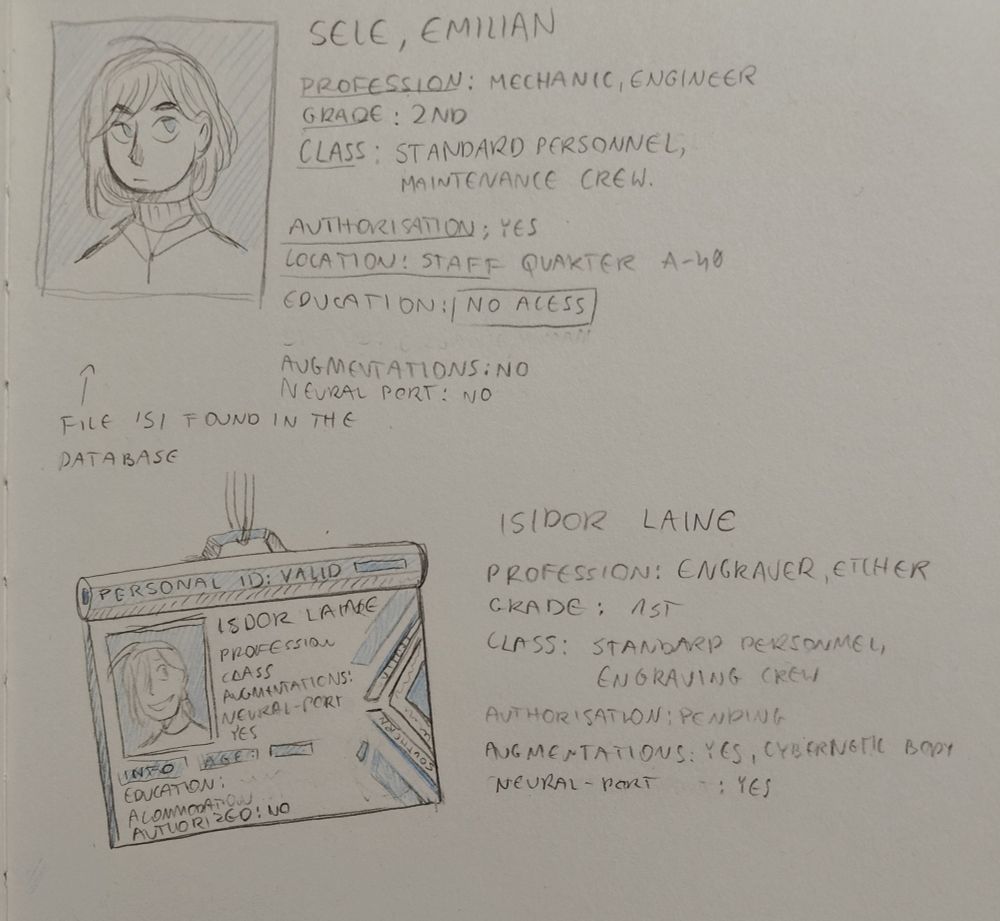 SELE, EMILIAN
PROFESSION: MECHANIC, ENGINEER
GRADE: 2ND
CLASS: STANDARD PERSONNEL,
MAINTENANCE CREW.
AUTHORISATION: YES
LOCATION: STAFF QUARTER A-40
EDUCATION: NO ACESS
AUGMENTATIONS: NO
NEURAL PORT: NO
FILE IS FOUND IN THE
DATABASE
PERSONAL ID: VALID
ISIDOR LAINE
PROFESSION
CLASS
AUGMENTATIONS:
NEURAL-PORT
YES
INFO AGE:
EDUCATION:
ACOMMODATION
AUTHORIZED: NO
SOUTHERN
ISIDOR LAINE
PROFESSION: ENGRAVER, ETCHER
GRADE: 1ST
CLASS: STANDARD PERSONNEL,
ENGRAVING CREW
AUTHORISATION: PENDING
AUGMENTATIONS: YES, CYBERNETIC BODY
NEURAL-PORT : YES